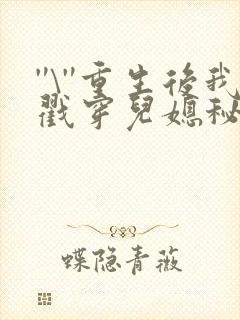 "\"重生後我
戳穿兒媳秘
蝶隐青薇